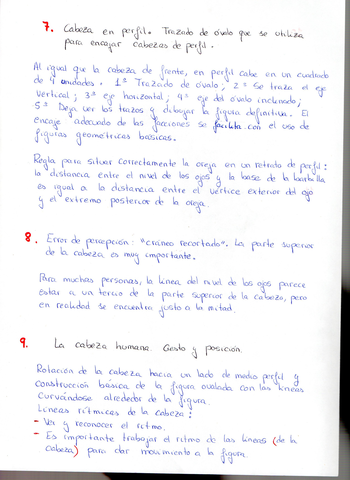 7. Cabeza en perfil. Trazado de óvalo que se utiliza
para encajar cabezas de perfil.
Al igual que la cabeza de frente, en perfil cabe en un cuadrado
de 4 unidades. 1º Trazado de óvalo; 2º Se traza el eje
vertical; 3º eje horizontal; 4º eje del óvalo inclinado;
5º Deja ver los trazos y dibujar la figura definitiva. El
encaje adecuado de las facciones se facilita con el uso de
figuras geométricas básicas.
Regla para situar correctamente la oreja en un retrato de perfil:
la distancia entre el nivel de los ojos y la base de la barbilla
es igual a la distancia entre el vértice exterior del ojo
y el extremo posterior de la oreja.
8. Error de percepción: "cráneo recortado". La parte superior
de la cabeza es muy importante.
Para muchas personas, la línea del nivel de los ojos parece
estar a un tercio de la parte superior de la cabeza, pero
en realidad se encuentra justo a la mitad.
9. La cabeza humana. Gesto y posición.
Rotación de la cabeza hacia un lado de medio perfil y
construcción básica de la figura ovalada con las líneas
curvándose alrededor de la figura.
Líneas rítmicas de la cabeza:
- Ver y reconocer el ritmo.
- Es importante trabajar el ritmo de las líneas (de la
cabeza) para dar movimiento a la figura.